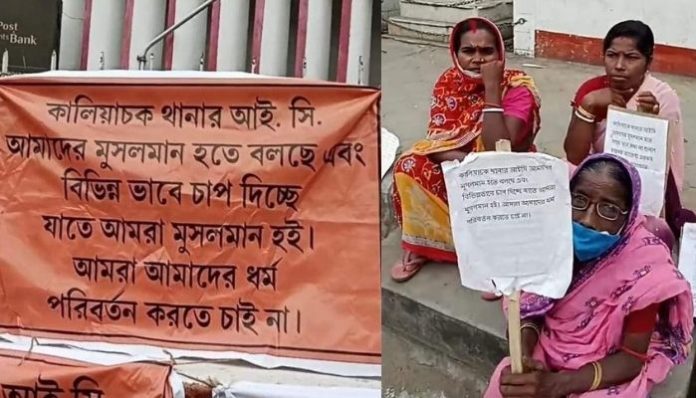 Post
nts Bank
কালিয়াচক থানার আই. সি.
আমাদের মুসলমান হতে বলছে এবং
বিভিন্ন ভাবে চাপ দিচ্ছে
যাতে আমরা মুসলমান হই।
আমরা আমাদের ধর্ম
পরিবর্তন করতে চাই না।
আই সি
কালিয়াচক থানার আইসি আমাদের
মুসলমান হতে বলছে এবং
বিভিন্নভাবে চাপ দিচ্ছে যাতে আমরা
মুসলমান হই। আমরা আমাদের ধর্ম
পরিবর্তন করতে চাই না।